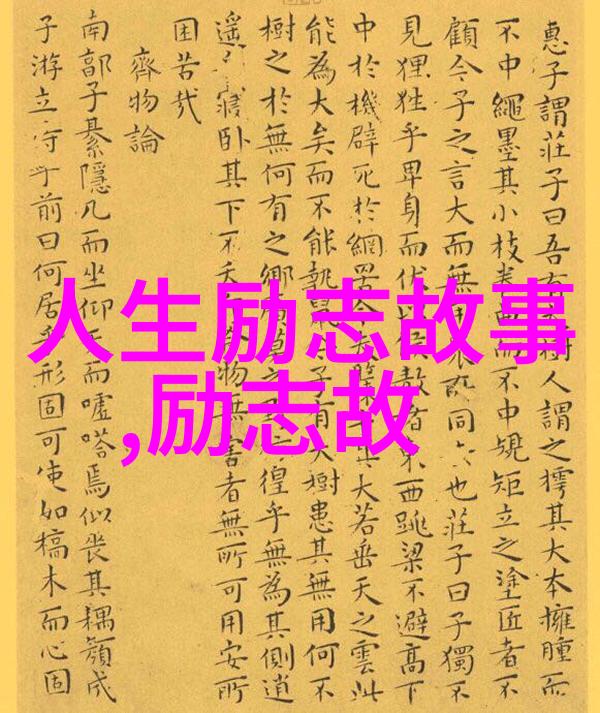 人生励志故事
,励志故
惠子謂莊子曰吾有樹人謂之樗其大本擁腫而
不中繩墨其小枝而不中規矩立之塗匠者不
顧今子之言大而無同也莊子曰子獨不
見狸狌乎卑身而伏敖者東西跳梁不避高下
中於機辟死於網罟其大若垂天之雲此
能為大矣而不能執鼠子有大樹患其無用何不
樹之於無何有之鄉莫之徨乎無為其側逍
遙寢臥其下不夭物無害者無所可用安所
困苦哉
齊物論
南郭子綦隱几而坐仰而噓嗒焉似喪其耦顏成
子游立侍乎前曰何居乎形固可使如槁木而心固